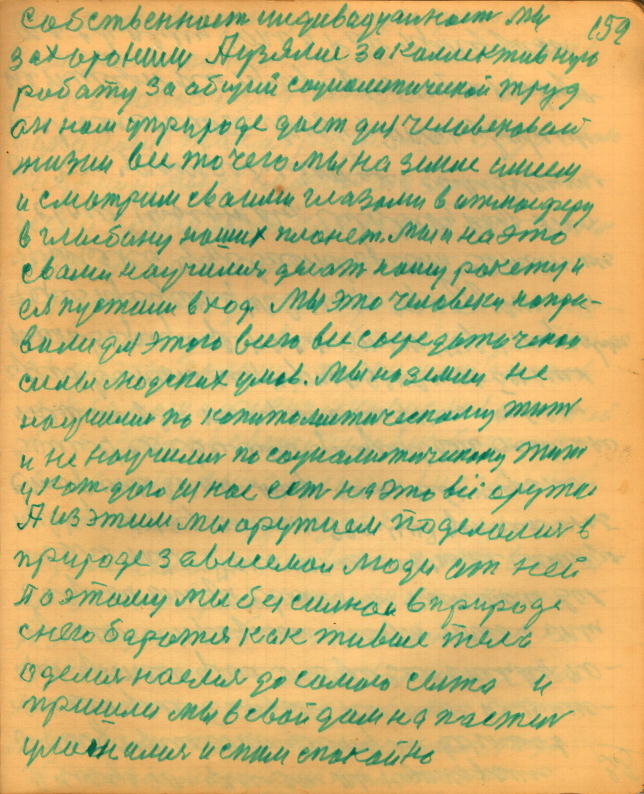 собственност индивидуальност мы 159
захоронили А узялис за коллективную
работу за общий социалистической труд
он нам у природе даст для человековой
жизни все то чего мы на земле имеем
и смотрим своими глазами в атмосферу
в глыбину наших планет. мы и на это
свами научилися делат нашу ракету и
ея пустили в ход. Мы это человеки напра-
вили для этого всего все сосредоточеной
силы людских умов. мы на земли не
научилис по копитолистическому жит
и не научилис по социалистическому жит
у каждого ш нас ест на это всё оружие
А из этим мы оружием поделалис в
природе зависемои люди от ней
Поэтому мы бессилнои в природе
снего баротся как живые тела
оделися наелися до самого сыта и
пришли мы в свой дом на пастел
уложилися и спим спокойно